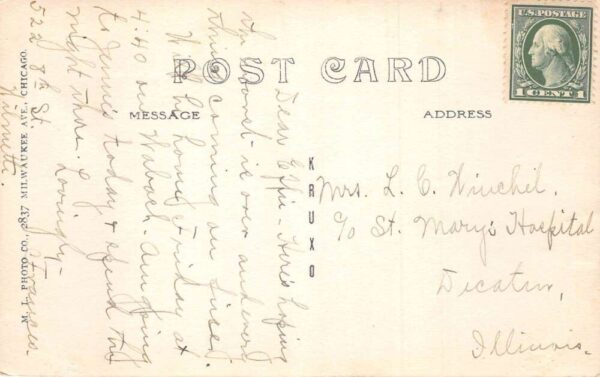 U.S. POSTAGE
1 CENT 1
POST CARD
MESSAGE
ADDRESS
Dear Effie - Here's hoping
the worst is over and every
thing coming on fine.
Will be home Friday at
4:40 over Wabash. Am going
to Jennie's today & spend the
night there.
Lovingly-
Frances.
522 8th St.
Wilmette.
KRUXO
Mrs. L. C. Winchel.
c/o St. Mary's Hospital
Decatur,
Illinois.
M. L. PHOTO CO., 2837 MILWAUKEE AVE., CHICAGO.